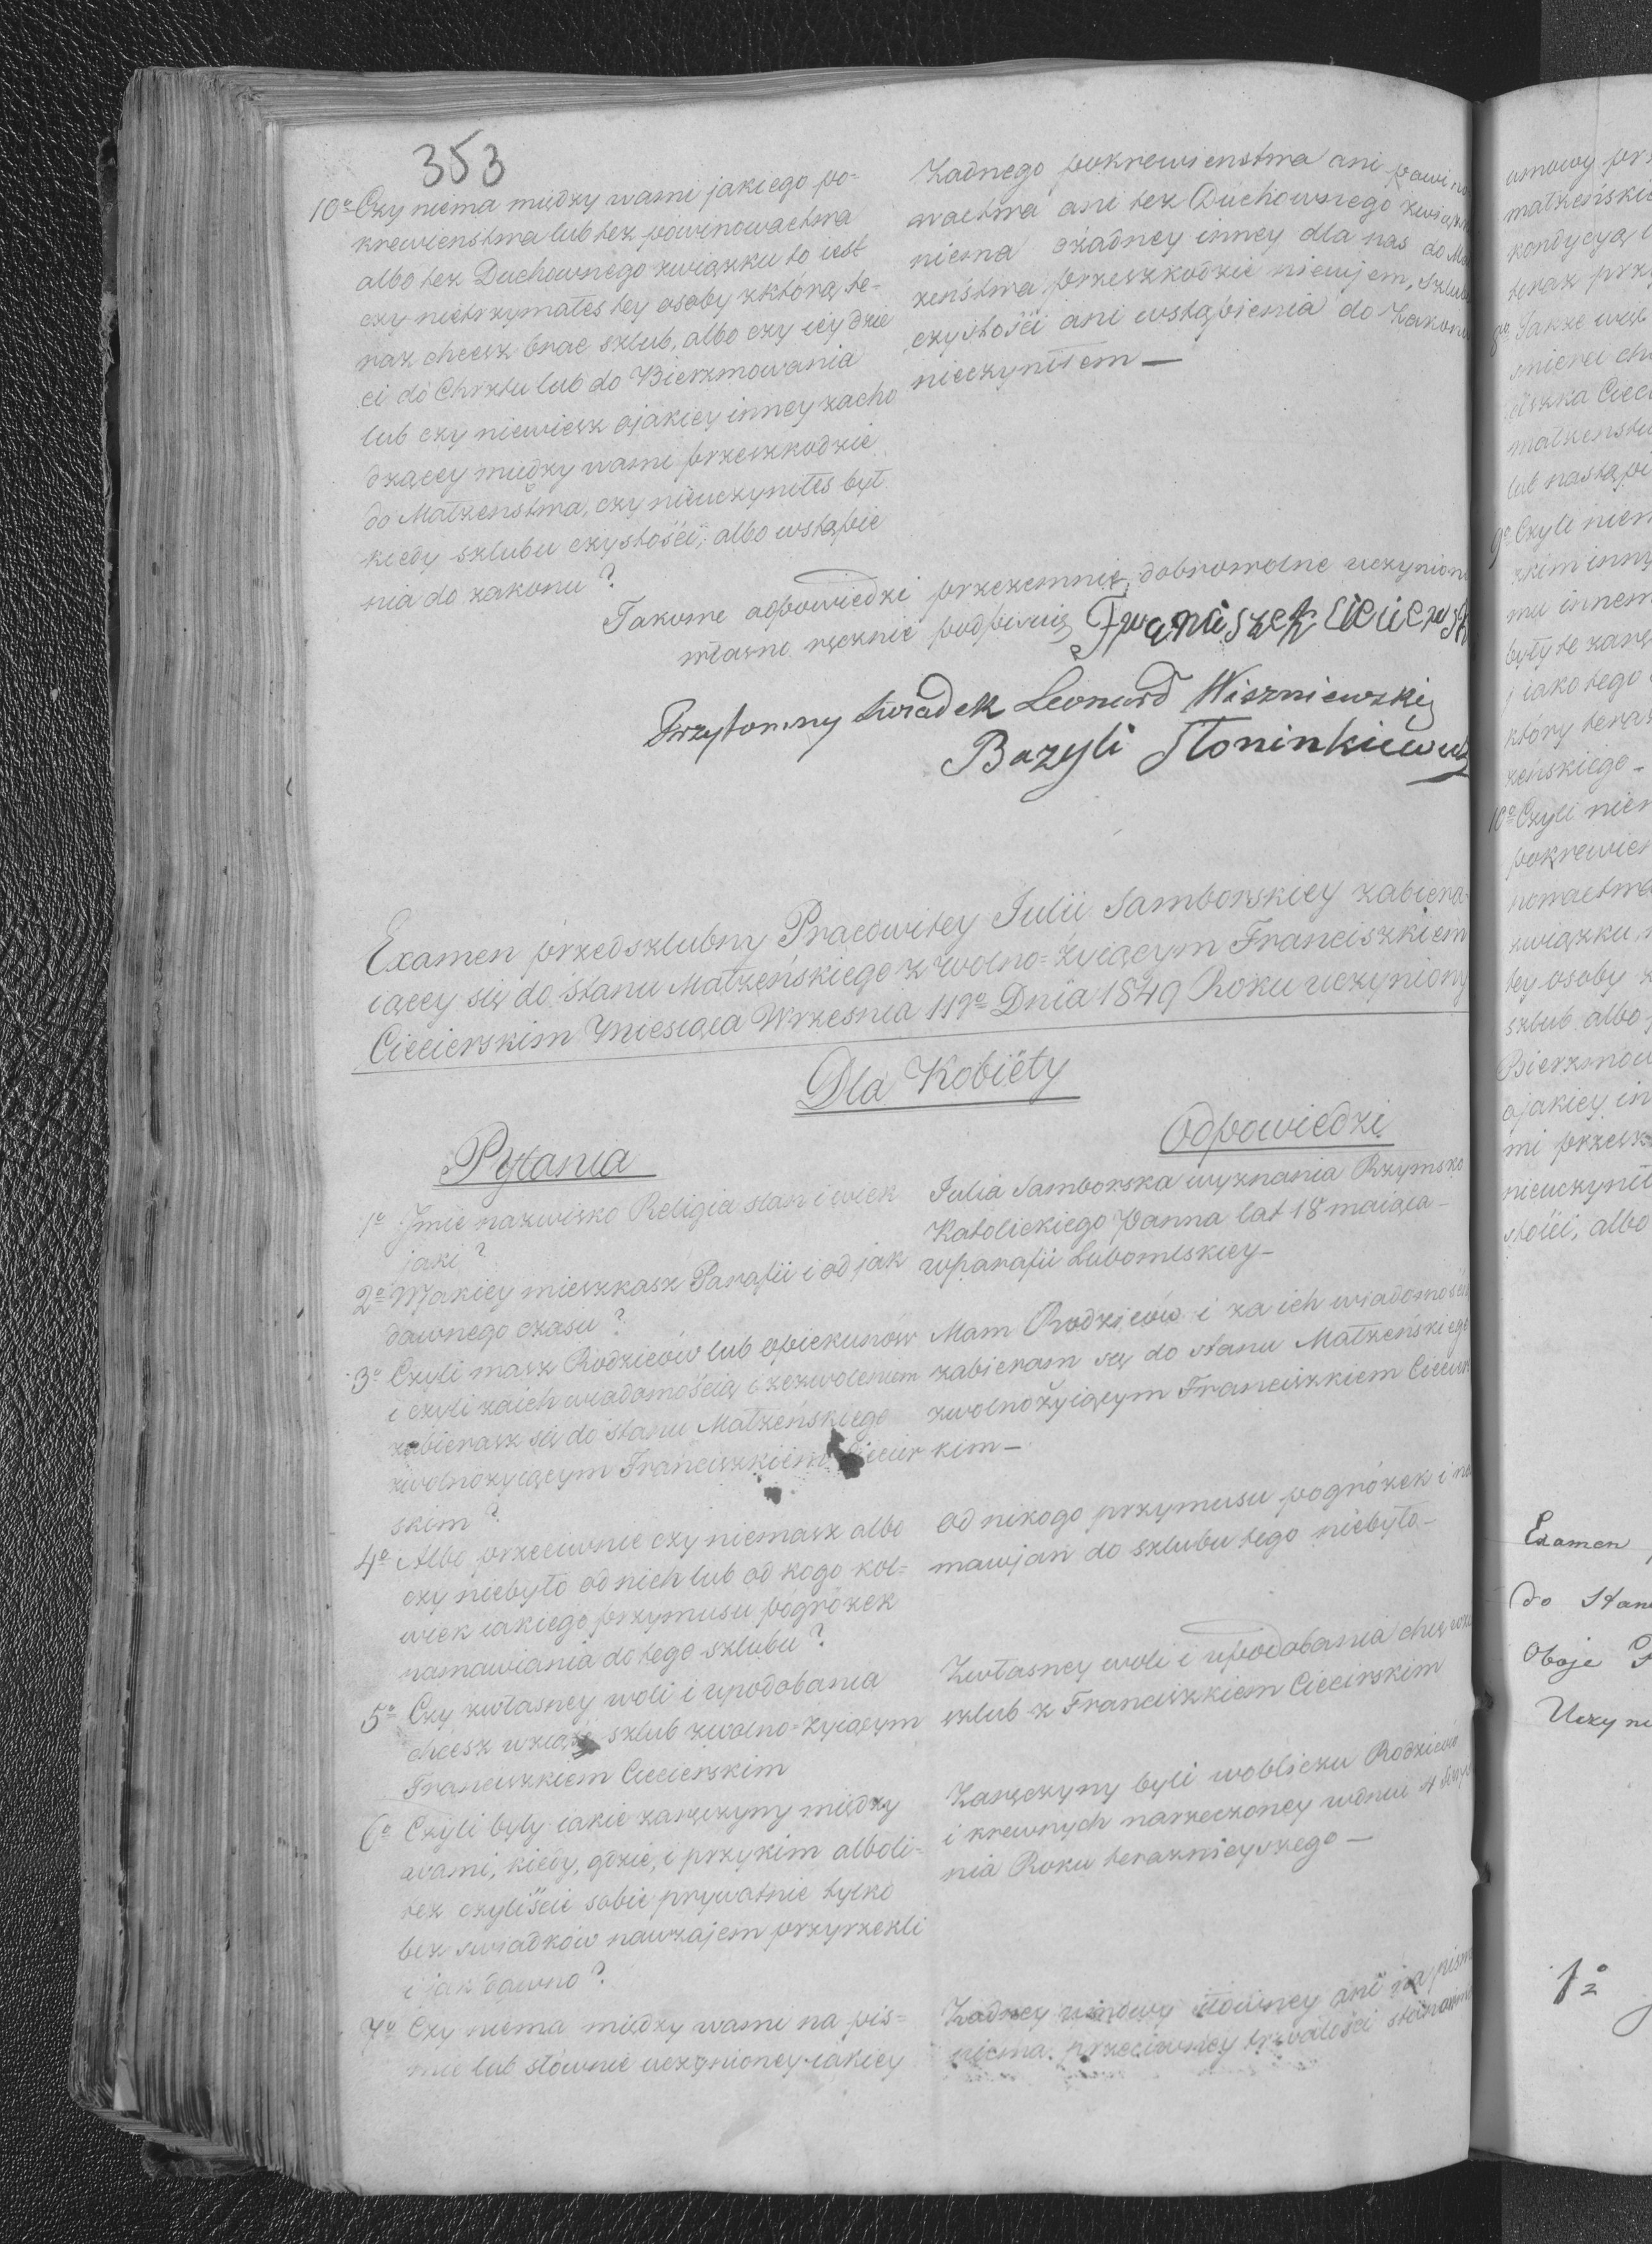 353
10o Czy niema między wami jakiego po-
krewienstwa lub tez powinowactwa
albo tez Duchownego związku to iest
czy nietrzymałes tey osoby z którą te-
raz chcesz brac szlub, albo czy iey dzie
ci do Chrztu lub do Bierzmowania
lub czy niewiesz ojakiey inney zacho
dzącey między wami przeszkodzie
do Małzenstwa, czy nieuczyniłes był
kiedy szlubu czystości, albo wstąpie
nia do zakonu?
Zadnego pokrewienstwa ani powino
wactwa ani tez Duchownego związku
niema ożadney inney dla nas do Mał
zeństwa przeszkodzie niewjem, szlubu
czystości ani wstąpienia do Zakonu
nieczyniłem —
Takowe odpowiedzi przezemnie dobrowolne uczynione
własno ręcznie podpisuię Franciszek
Przytomny swiadek Leonard Wiszniewski
Bazyli Słoninkiewicz
Examen przedszlubny Pracowitey Julii Samborskiey zabiera
iącey się do Stanu Małzeńskiego z wolno=żyiącym Franciszkiem
Ciecierskim Miesiąca Wrzesnia 11go Dnia 1849 Roku uczyniony
Dla Kobiéty
Pytania
Odpowiedzi
1o Jmie nazwisko Religia stan i wiek
jaki?
Julia Samborska wyznania Rzymsko
Katolickiego Panna lat 18 maiąca —
2o Wjakiey mieszkasz Parafii i od jak
dawnego czasu?
wparafii Lubomlskiey —
3o Czyli masz Rodziców lub opiekunów
i czyli zaich wiadomością i zezwoleniem
zabierasz się do Stanu Małzeńskiego
zwolnozyiącym Franciszkiem Ciecier
skim?
Mam Rodziców i za ich wiadomością
zabieram się do stanu Małzeńskiego
zwolnożyiącym Franciszkiem Ciecirs
kim —
4o Albo przeciwnie czy niemasz albo
czy niebyło od nich lub od kogo kol=
wiek iakiego przymusu pogrózek
namawiania do tego szlubu?
od nikogo przymusu pogrózek i na
mawjań do szlubu tego niebyło —
5o Czy zwłasney woli i upodobania
chcesz wziąść szlub zwolno=zyiącym
Franciszkiem Ciecierskim
Zwłasney woli i upodobania chcę
szlub z Franciszkiem Ciecirskim
6o Czyli były iakie zaręczyny między
wami, kiedy, gdzie, i przykim alboli=
tez czyliście sobie prywatnie tylko
bez swiadków nawzajem przyrzekli
i jak dawno?
Zaręczyny byli wobliczu Rodziców
i krewnych narzeczoney wdniu 4
nia Roku terazniejszego —
7o Czy niema między wami na pis=
mie lub słównie uczynioney iakiey
Zadney umowy słówney ani na pismie
niema przeciwney trwałości
umowy
kondycyą
teraz
Ciec
lub nastąpi
9o Czyli niem
zkim inny
mu innem
były te zarę
j iako tego
który teraz
zeńskiego —
10o Czyli niem
pokrewien
nowactwa
związku,
tey osoby z
szlub albo
Bierzmow
ojakiey in
mi przesz
nieuczynił
stości, albo
Examen
do Stanu
Oboje
Uczyni
1o